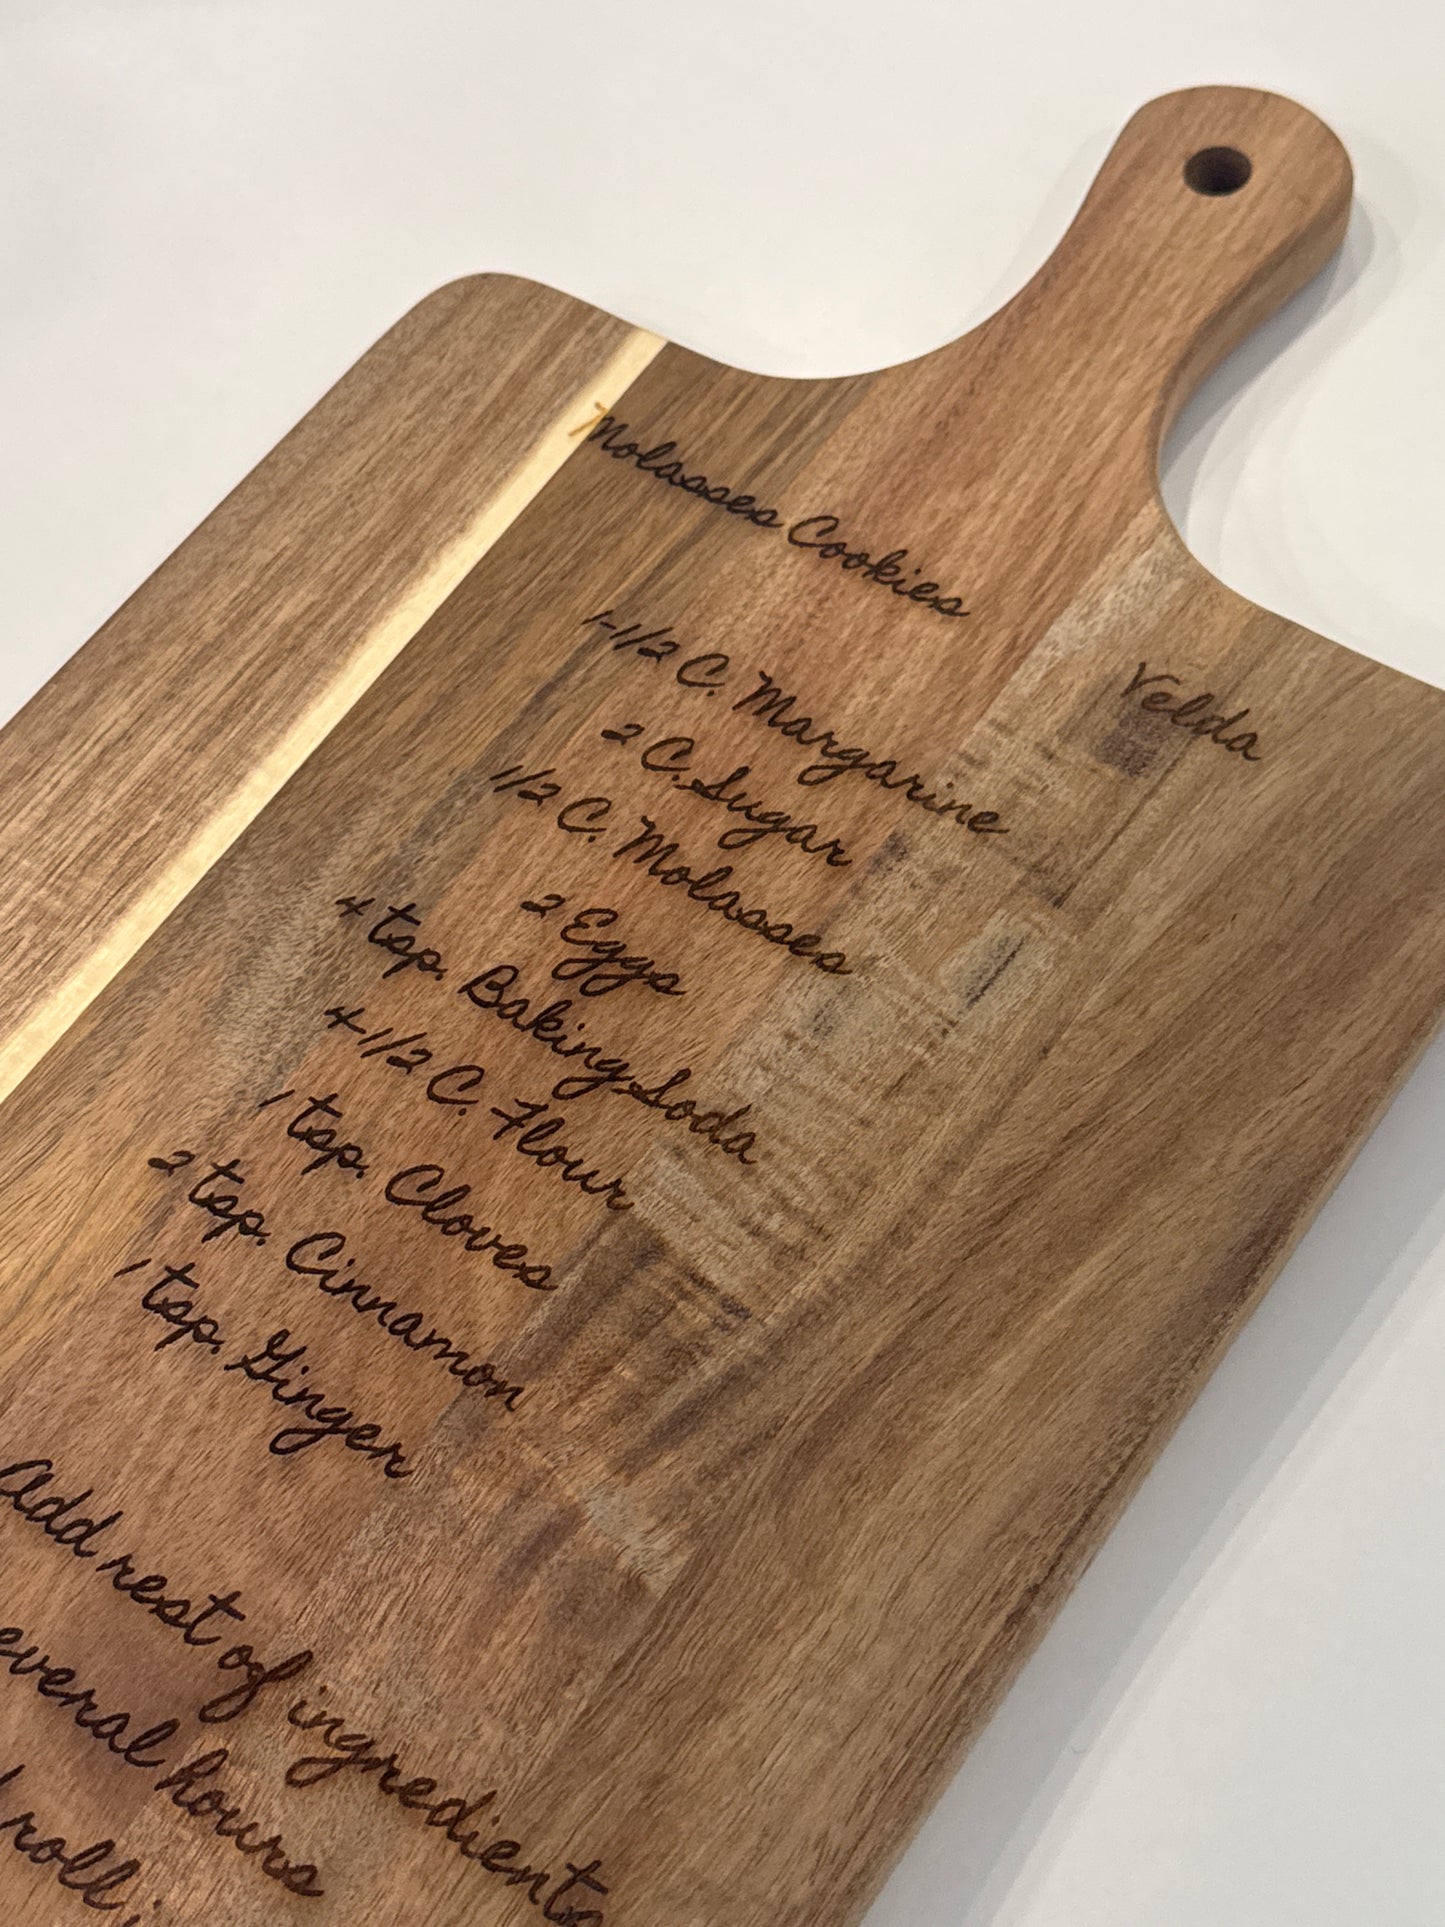 Molasses Cookies
Velda
1-1/2 C. Margarine
2 C. Sugar
1/2 C. Molasses
2 Eggs
4 tsp. Baking Soda
4-1/2 C. Flour
1 tsp. Cloves
2 tsp. Cinnamon
1 tsp. Ginger
Add rest of ingredients
everal hours
roll i